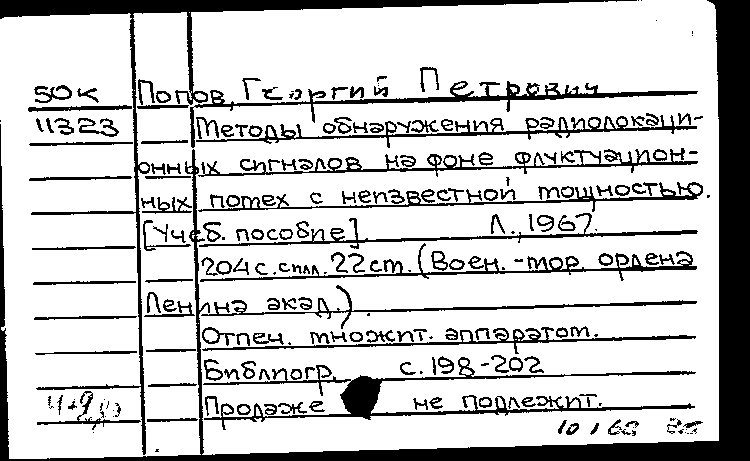 50К Попов, Георгий Петрович
11323 Методы обнаружения радиолокаци-
онных сигналов на фоне флуктуацион-
ных помех с неизвестной мощностью.
[Учеб. пособие]. Л., 1967.
204 с. с илл. 22 см. (Воен.-мор. ордена
Ленина акад.).
Отпеч. множит. аппаратом.
Библиогр. с. 198-202
Продаже не подлежит.